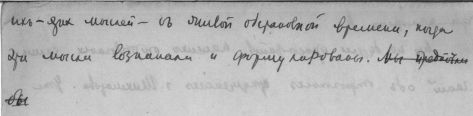 ихъ - этих мыслей - съ живой обстановкой времени, когда
эти мысли возникали и формулировались. Мы
бы